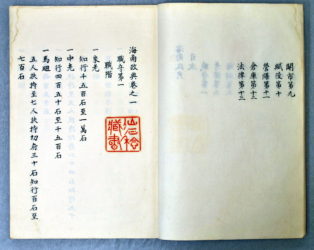 關市第九
賦役第十
營繕第十一
倉庫第十二
法律第十三
海南政典卷之一
職官第一
職階
一家老
知行千五百石至一萬石
一中老
知行四百五十石至千五百石
一馬廻
五人扶持至七人扶持切府三十石知行百石至
七百石
山內
藏書